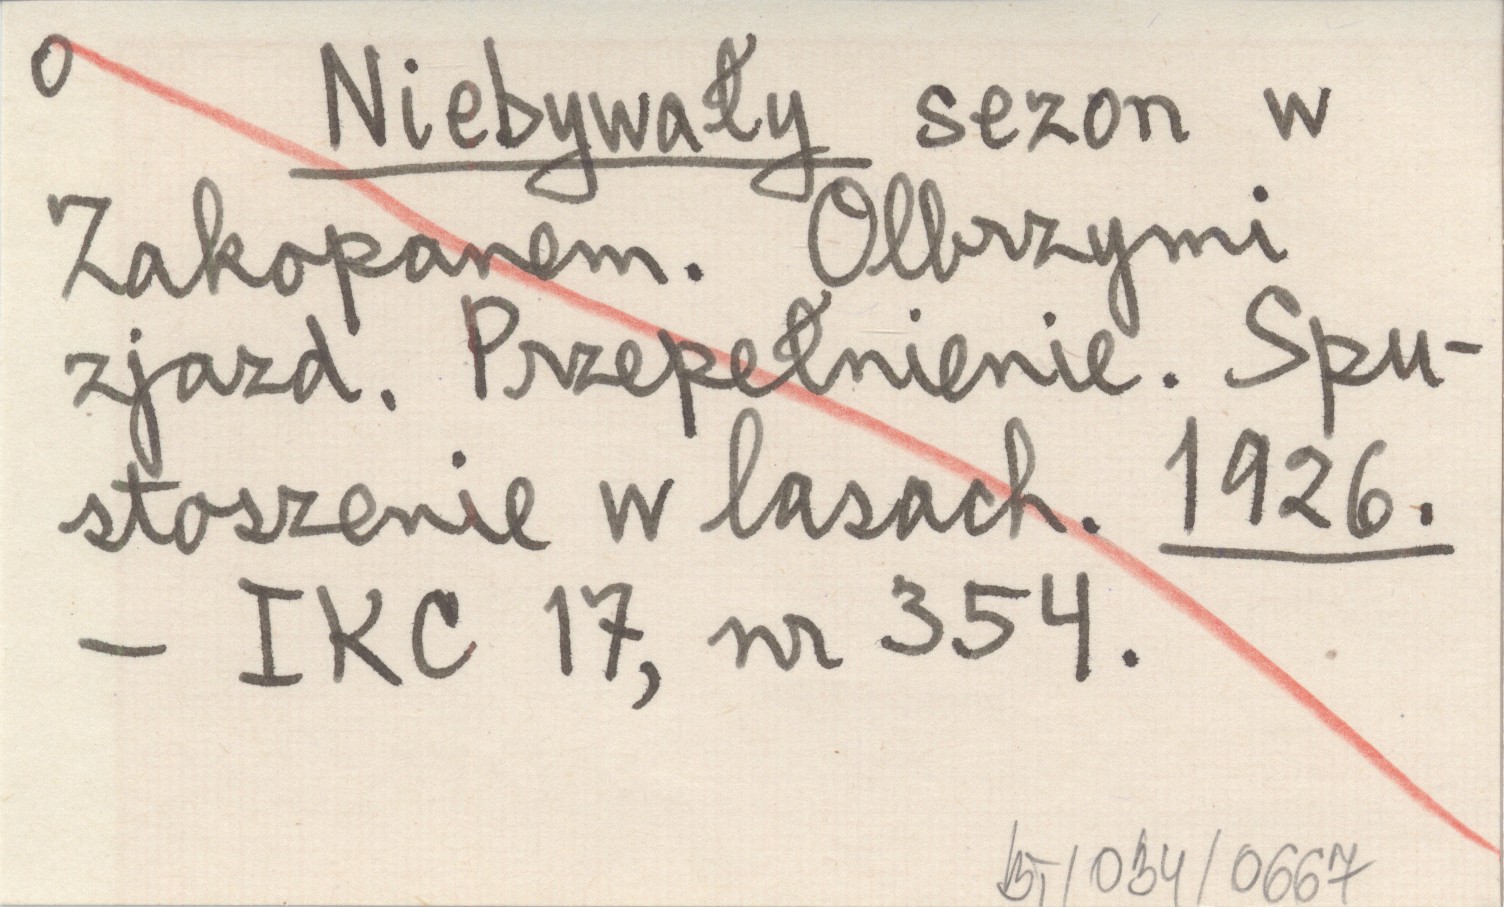 O
Niebywały sezon w
Zakopanem. Olbrzymi
zjazd. Przepełnienie. Spu-
stoszenie w lasach. 1926.
– IKC 17, nr 354.
BT/034/0667